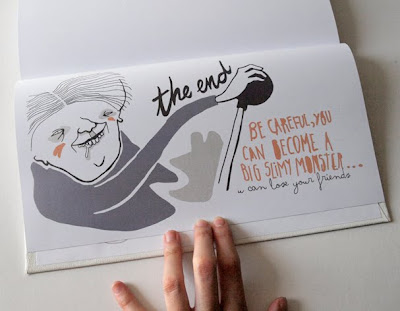 the end
BE CAREFUL, YOU
CAN BECOME A
BIG SLIMY MONSTER...
u can lose your friends